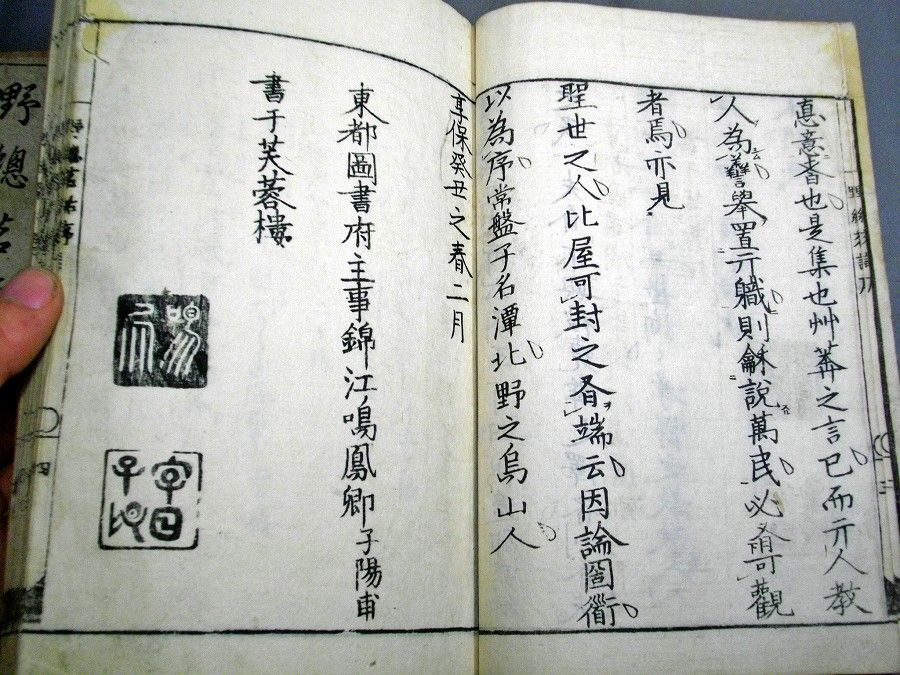 悳意也是集也艸莽之言已而亓人教
人為擧置亓職則龢說萬民必有可觀
者焉亦見
聖世之人比屋可封之端云因論衜
以為序常盤子名潭北野之烏山人
享保癸丑之春二月
東都圖書府主事錦江鳴鳳卿子陽甫
書于芙蓉樓
字曰子
四
野總茗